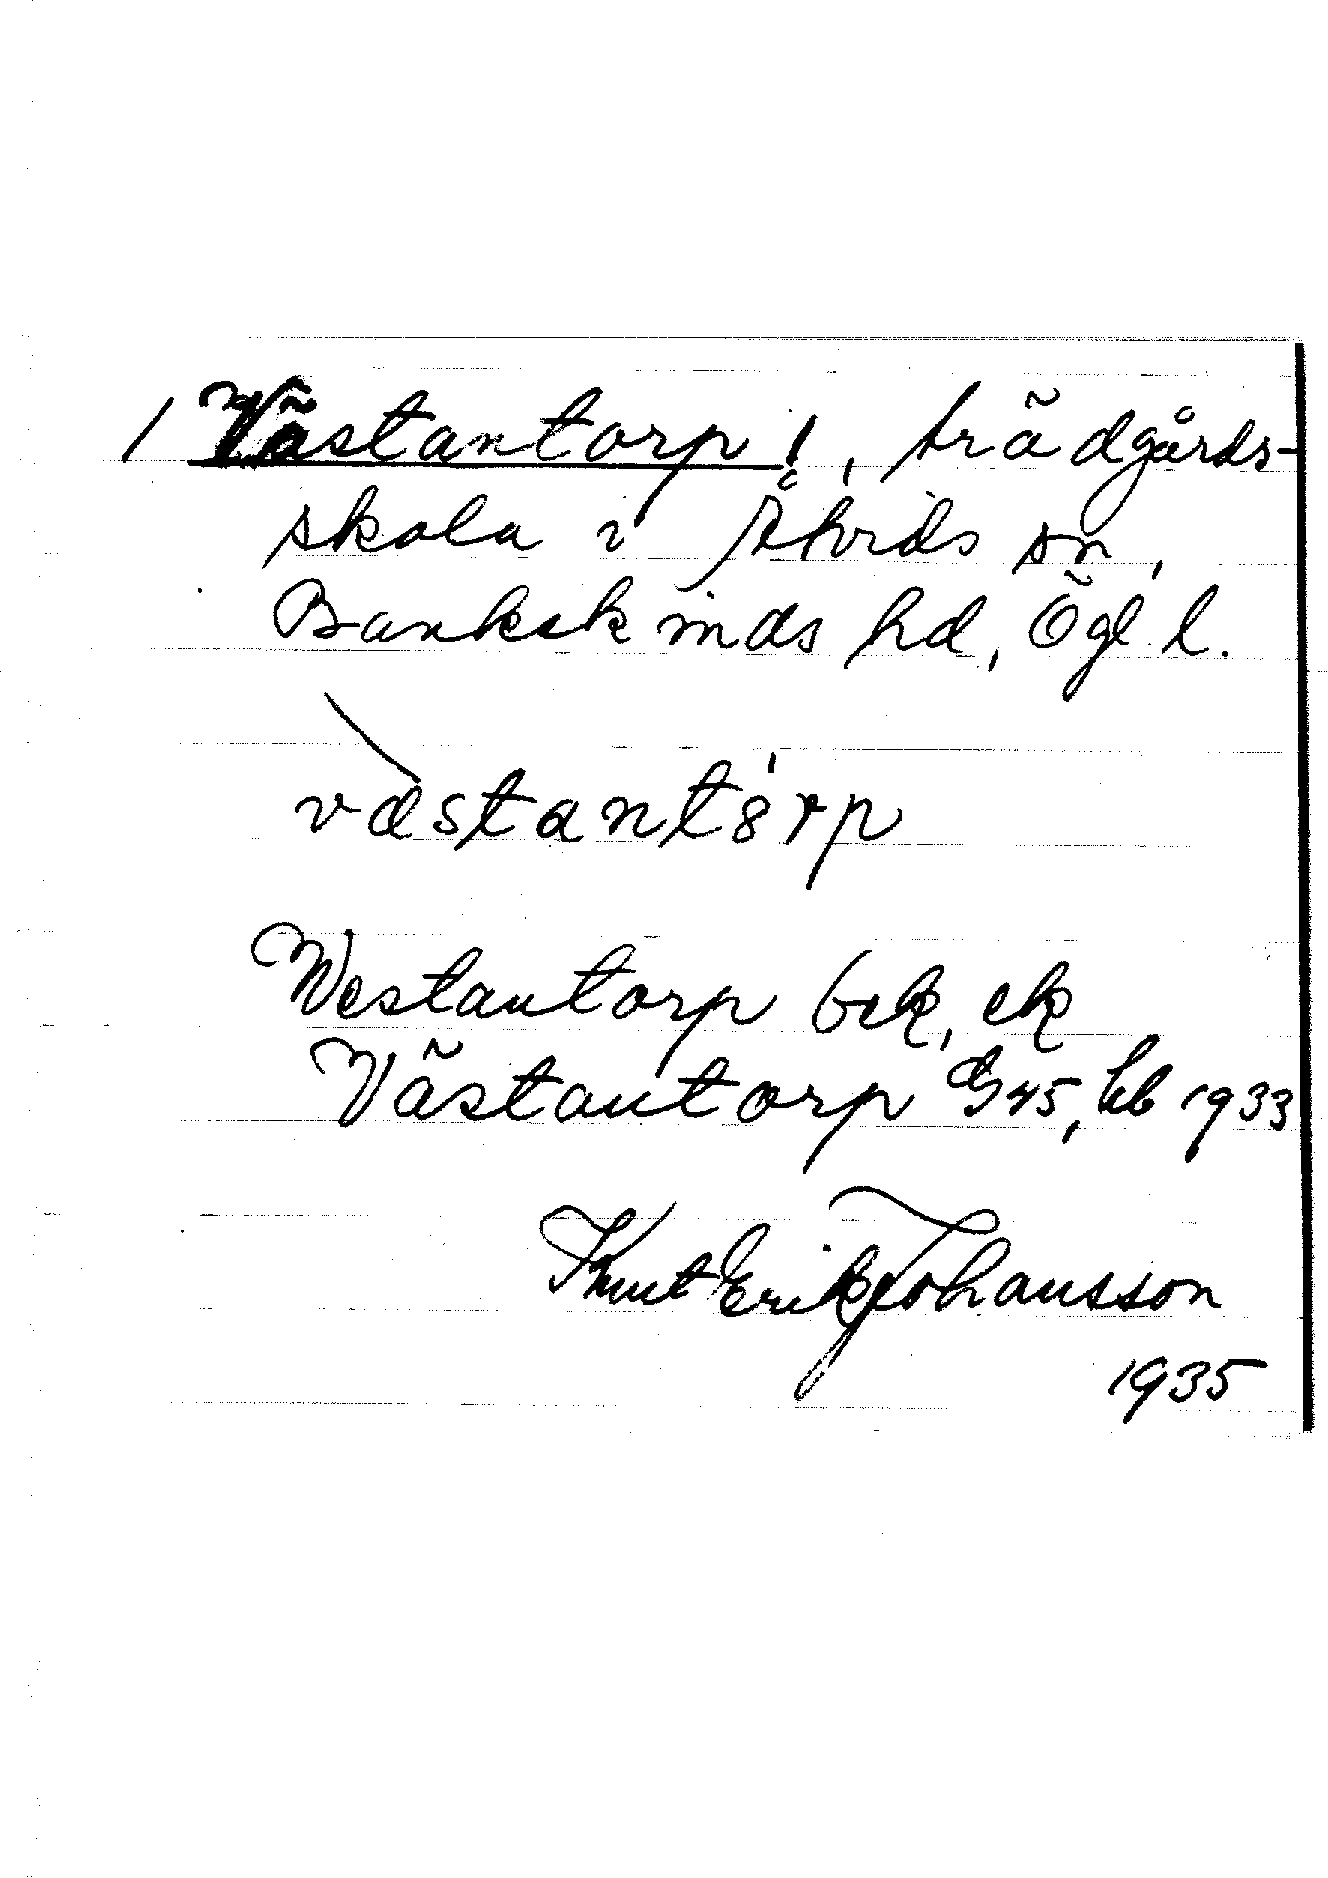 / Västantorp /, trädgårds-
skola i Åtvids sn,
Bankekinds hd, Ögl l.
væstantörp
Westantorp bek, ek
Västantorp G 45, hb 1933
Knut Erik Johansson
1935